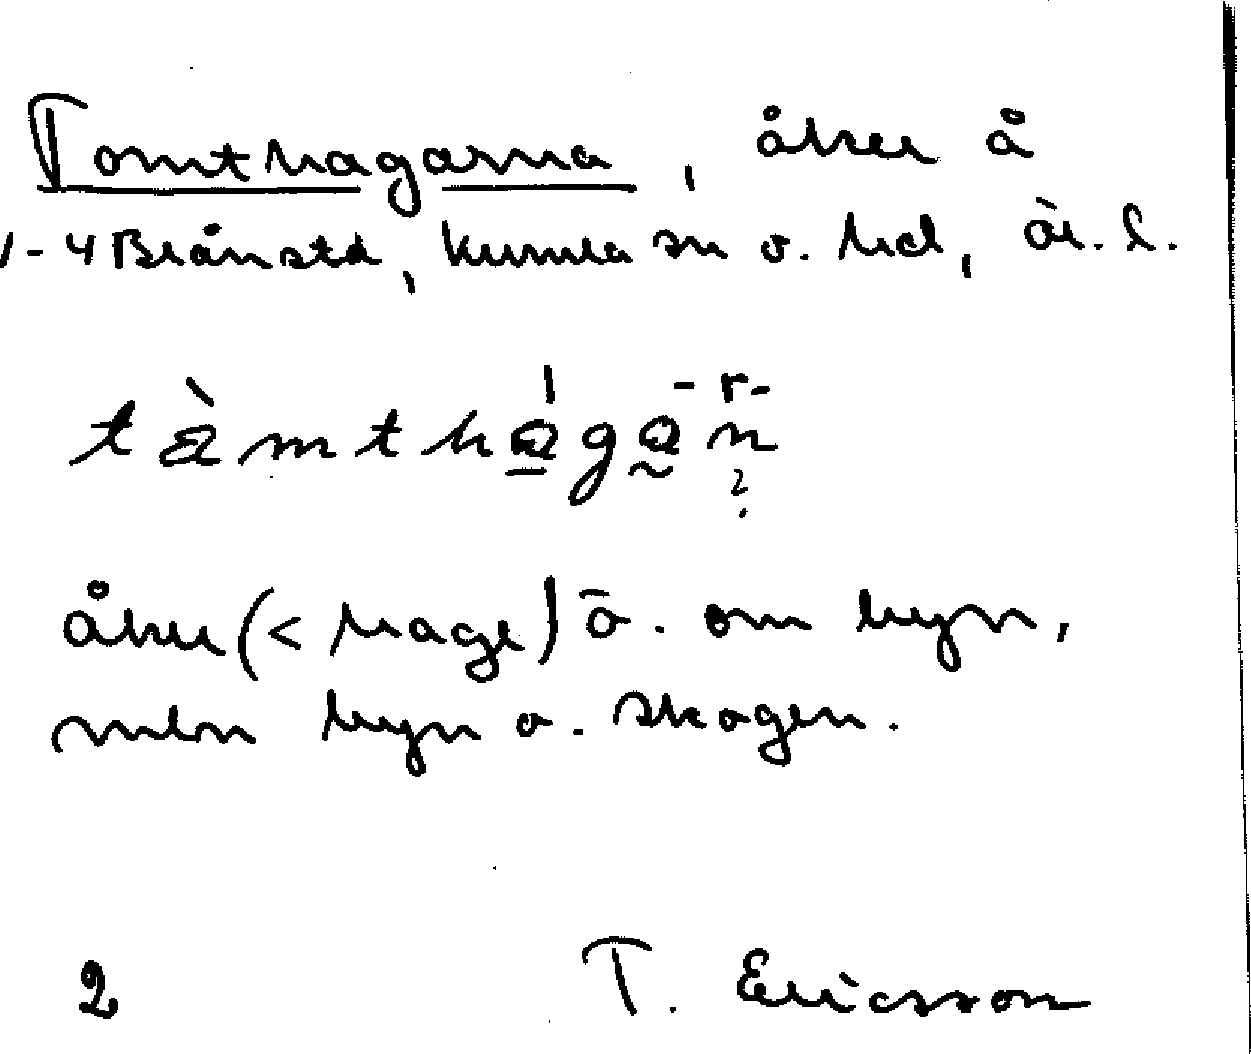 Tomthagarna, åker å
1-4 Brånsta, Kumla sn o. hd, Ör. l.
tämthagan
-r-
?
åker (< hage) ö. om byn,
mln byn o. skogen.
2 T. Ericsson